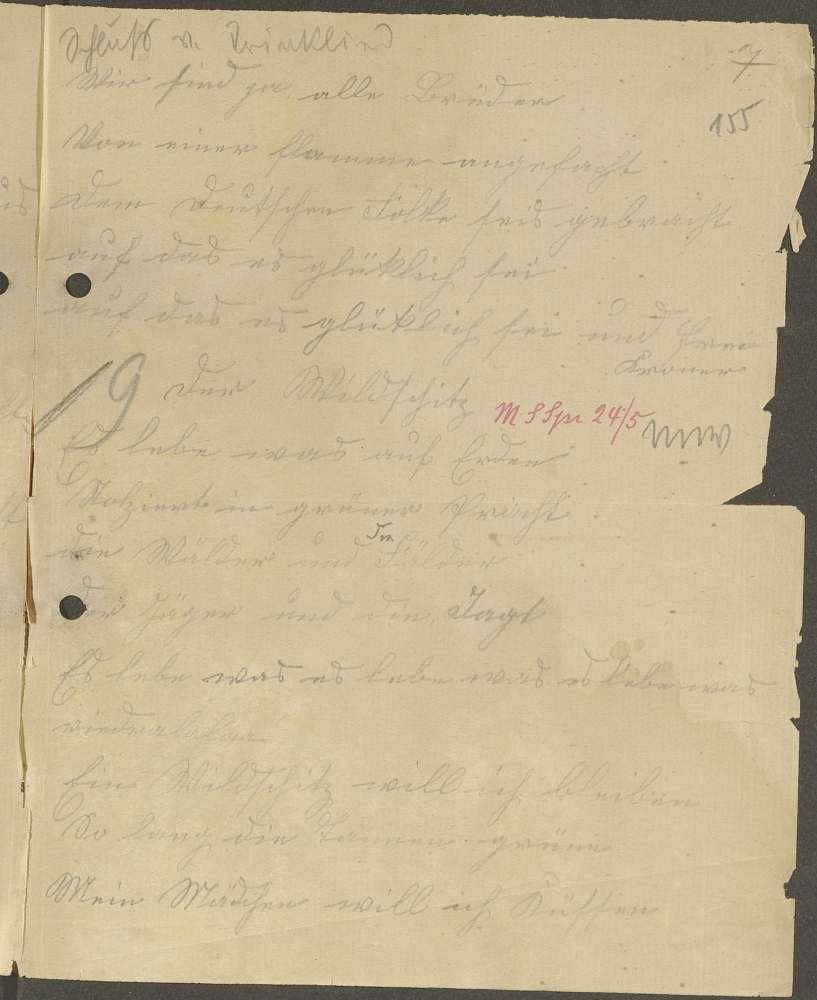 Schluß v. Trinklied
7
Wir sind ja alle Brüder
155
Von einer flamme angefacht
Dem Deutschen Folke seis gebracht
auf das es glüklich sei
auf das es glüklich sei und frei
Kroner
9 Der Wildschitz
M S Spr 24/5
Es lebe was auf Erden
Stolziert in grüner Pracht
die Wälder und die Fälder
der Jäger und die Jagt
Es lebe was es lebe was es lebe was
Ein Wildschitz will ich bleiben
So lang die Tannen grüne
Mein Mädchen will ich Küssen